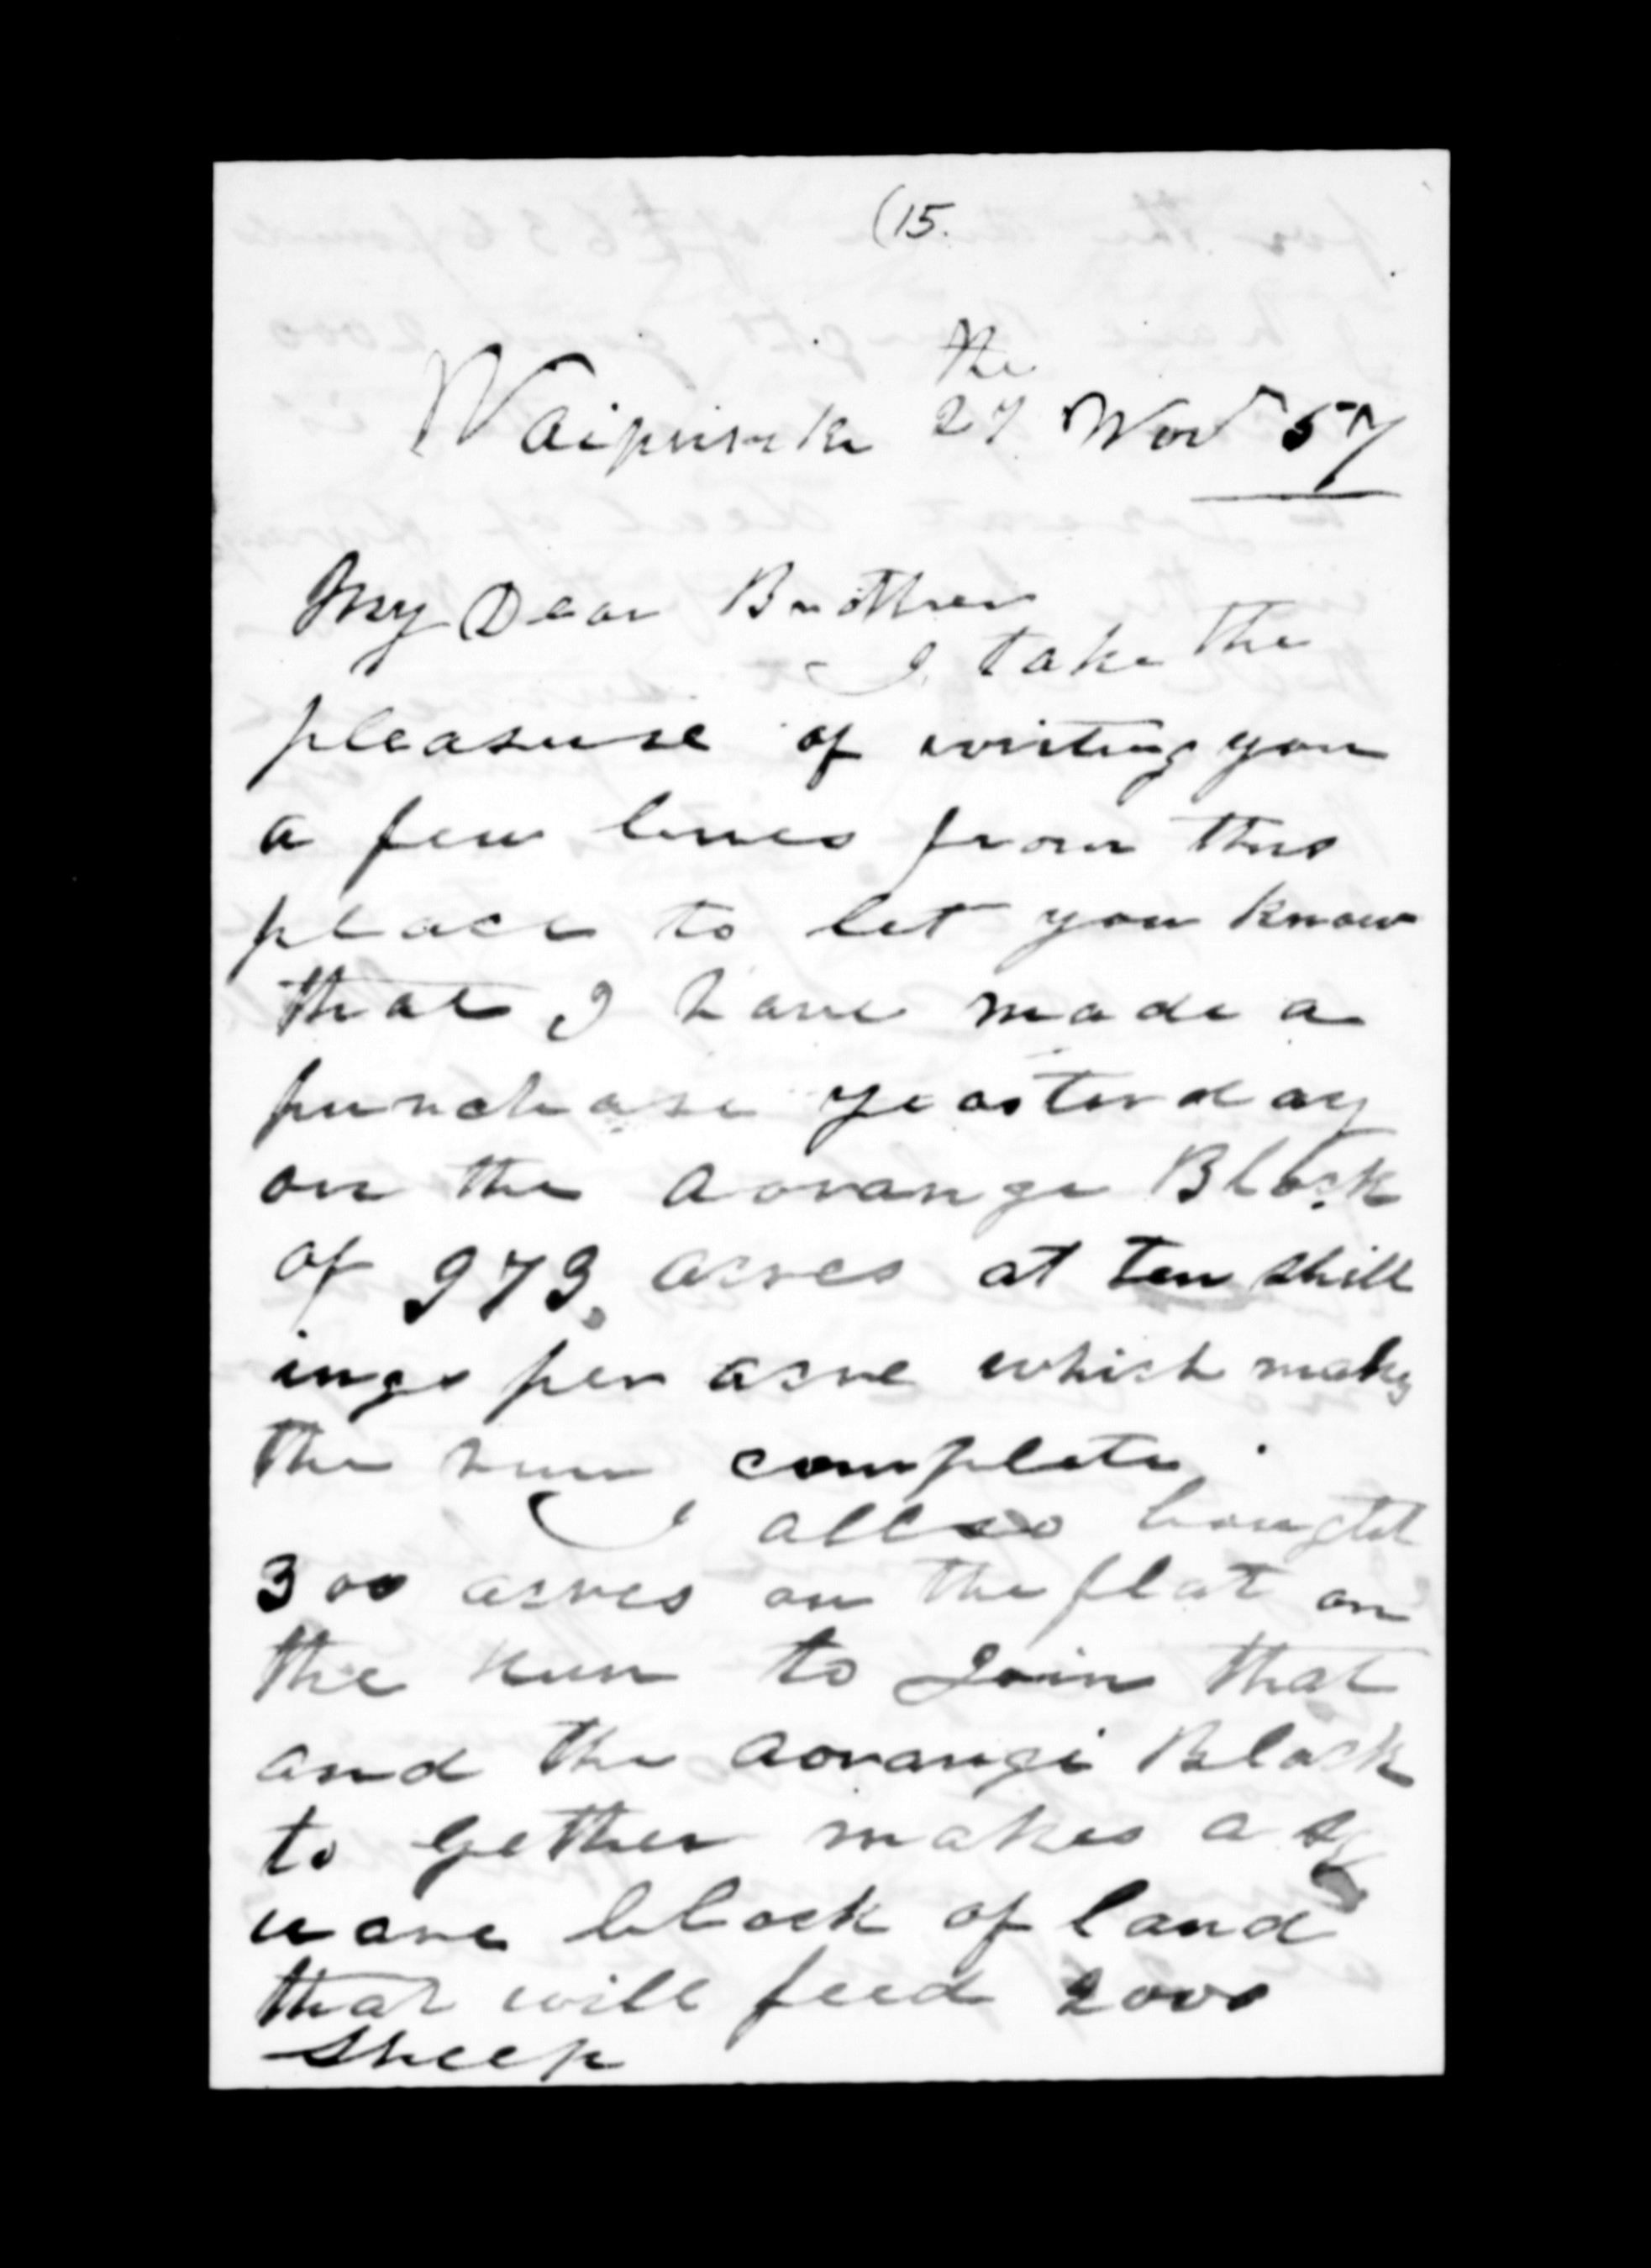 (15.
the
Waipuruka 27 Novr 57
My Dear Brother
I take the
pleasure of writing you
a few lines from this
place to let you know
that I have made a
purchase yeasterday
on the Aorange Block
of 973 acres at ten shill
ings per acre which makes
the run complete.
I allso bought
300 acres on the flat on
the run to Join that
and the Aorangi Block
to gether makes a sq
uare block of land
that will feed 2000
sheep